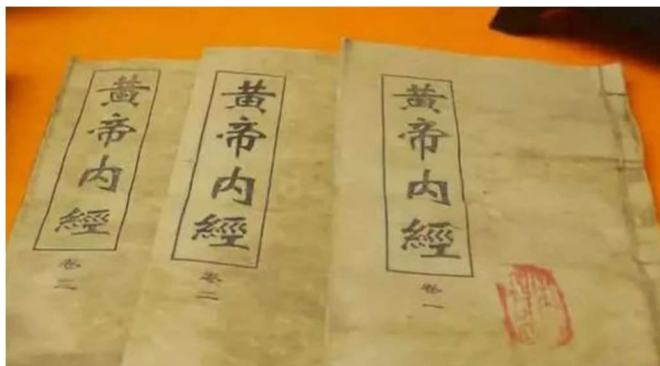 黄帝内經
卷一
黄帝内經
卷二
黄帝内經
卷二